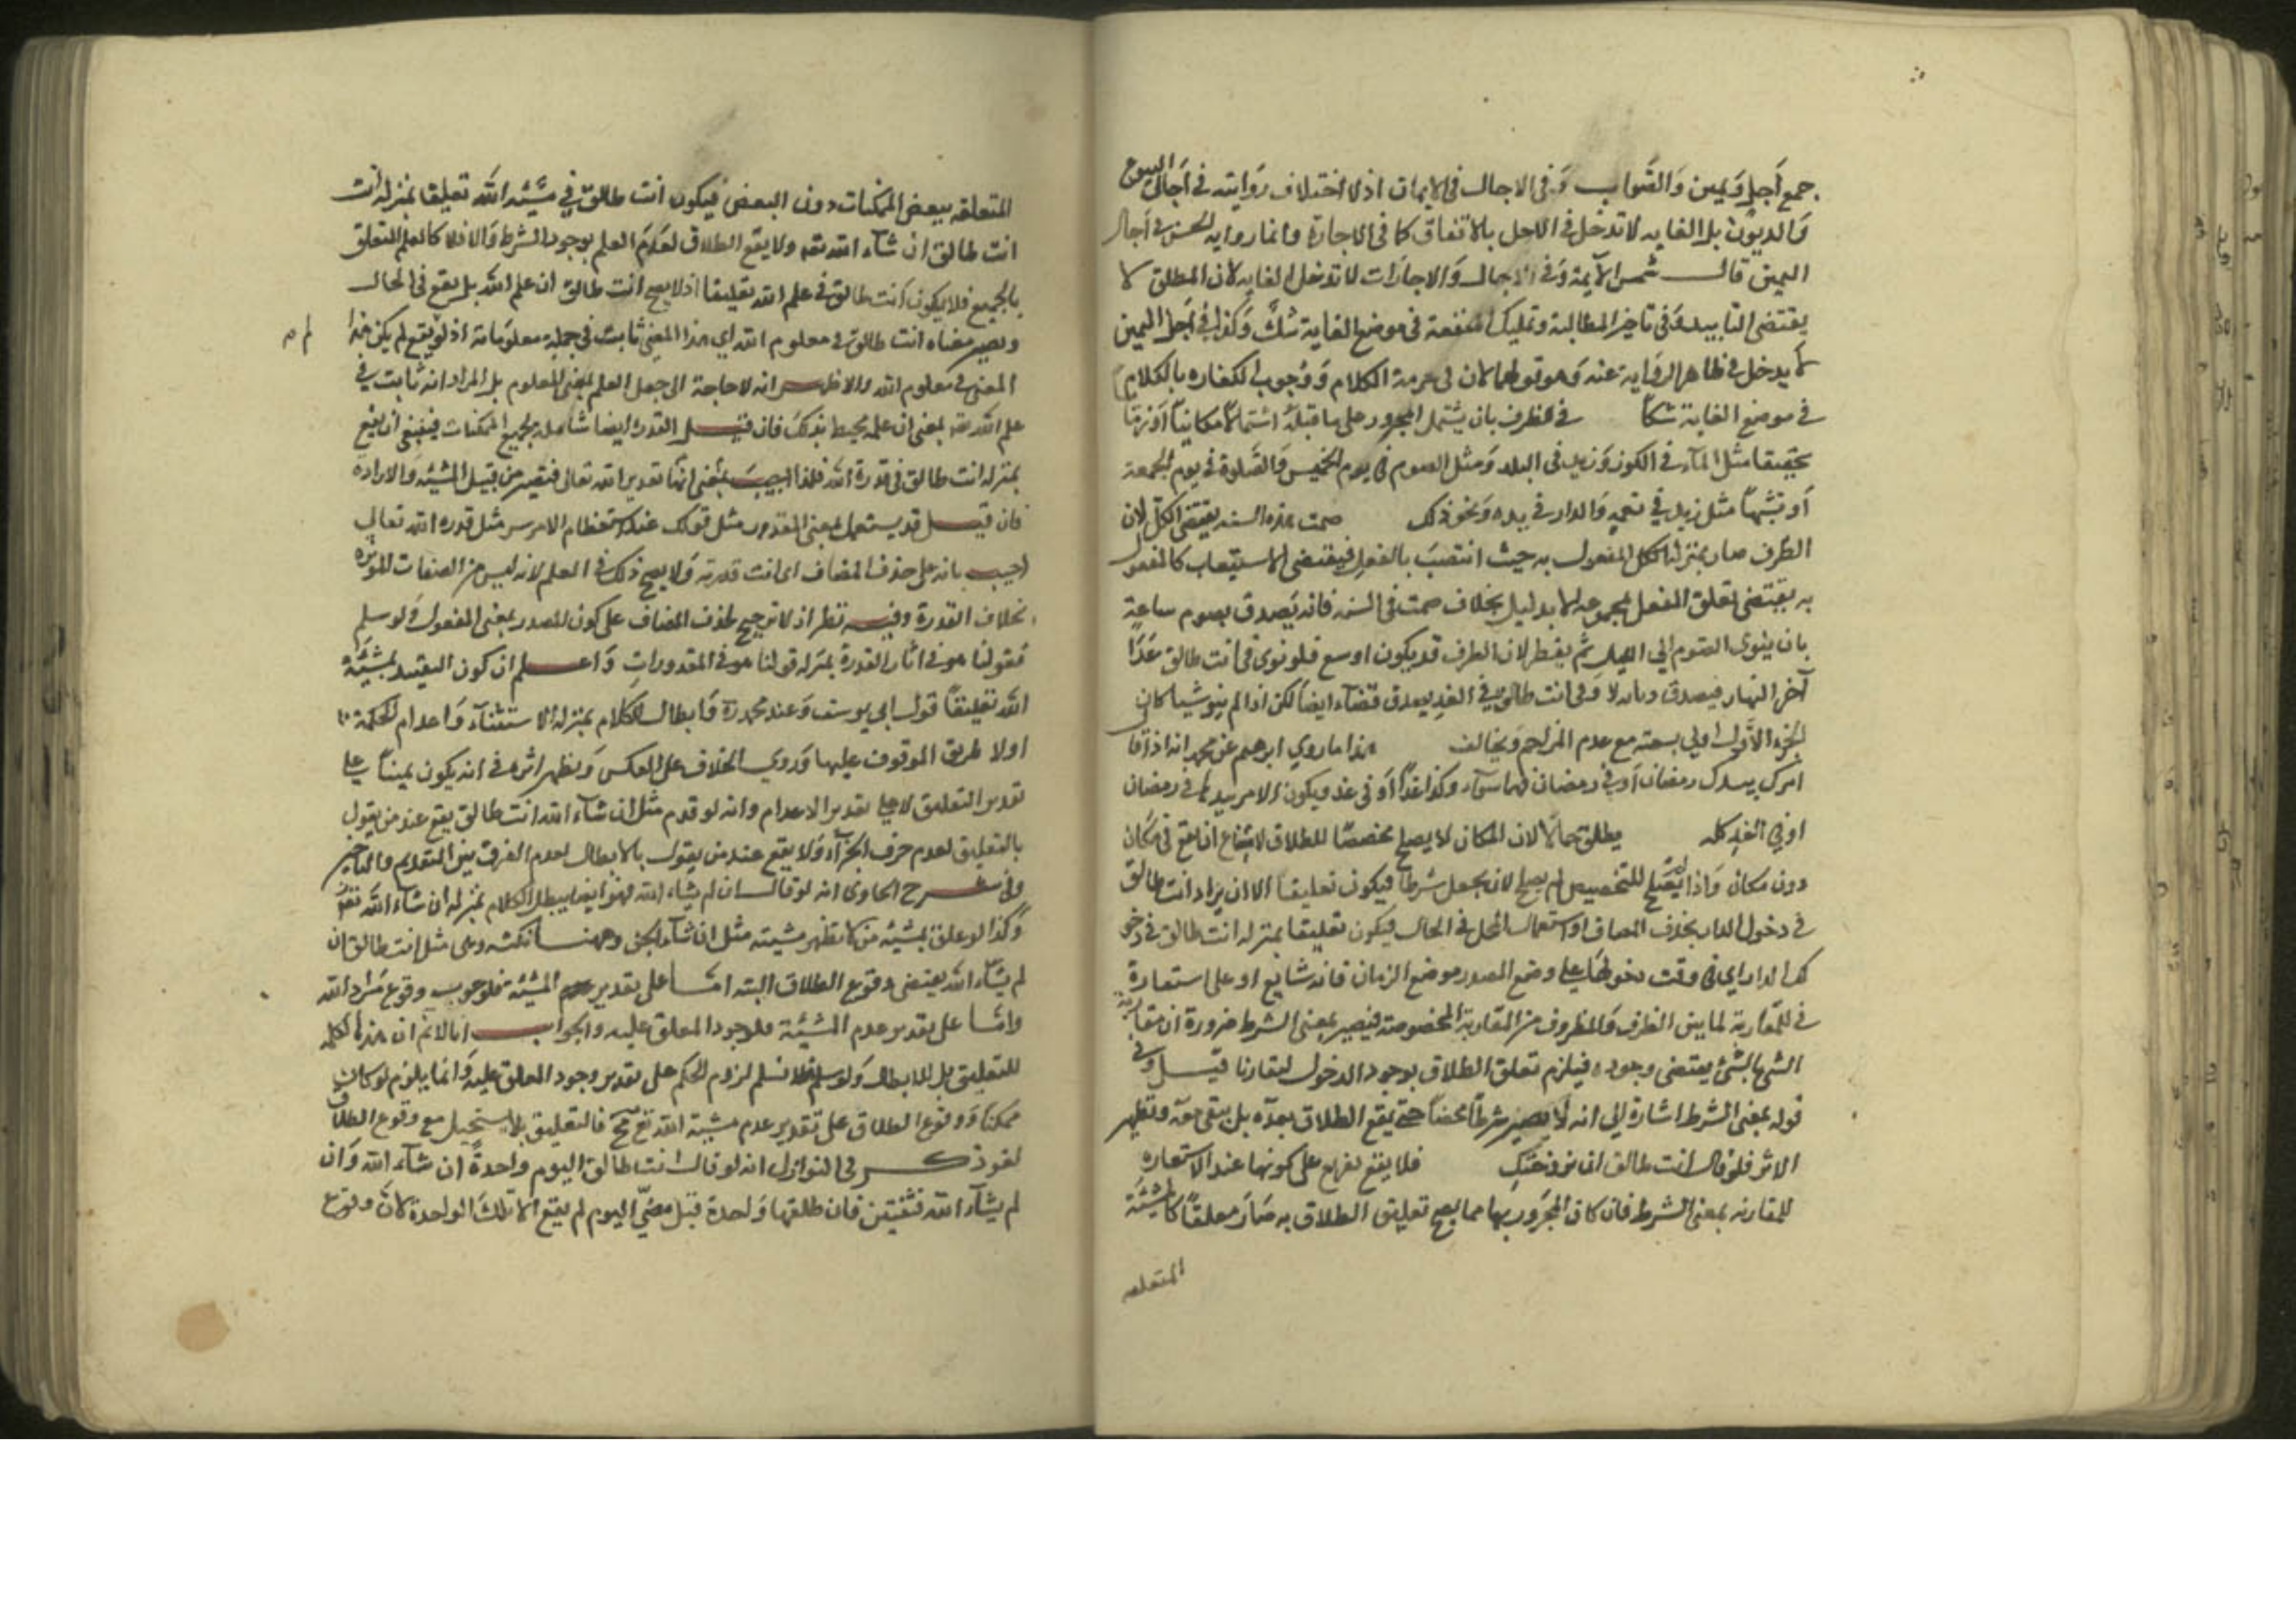 جمع أجل ويمين والصواب وفى الاجال فى الايمان اذ لا اختلاف روايته فى آجال البيوع
والديون بل الغايه لا تدخل فى الاجل بالاتفاق كما فى الاجارة وانما روايه الحسن فى آجال
اليمين قال شمس الآيمة وفى الآجال والاجارات لا تدخل الغايه لان المطلق لا
يقتضى التابيد وفى تاخير المطالبة وتمليك المنفعة فى موضع الغاية شك وكذا فى اجل اليمين
لا يدخل فى ظاهر الرواية عنه وهو قولهما لان فى حرمة الكلام ووجوب الكفاره بالكلام
فى موضع الغاية شكا فى للظرف بان يشتمل المجرور على ما قبله اشتمالا مكانيا او زمانيا
تحقيقا مثل الماء فى الكوز وزيد فى البلد ومثل الصوم فى يوم الخميس والصلوة فى يوم الجمعة
او تشبيها مثل زيد فى نعمة والدار فى يده ونحو ذلك صمت هذه السنه يقتضى الكل لان
الظرف صار بمنزلة المفعول به حيث انتصب بالفعل فيقتضى الاستيعاب كالمفعول
به يقتضى تعلق الفعل بمجموعه الا بدليل بخلاف صمت فى السنه فانه يصدق بصوم ساعة
بان ينوى الصوم الى الليل ثم يفطر لان الظرف قد يكون اوسع فلو نوى فى انت طالق غدا
آخر النهار فيصدق ديانه لا وفى انت طالق فى الغد يصدق قضاء ايضا لكن اذا لم ينو شيا كان
الجزء الاول اولى بسبقه مع عدم المزاحم ويخالف هذا ما روي ابرهيم عن محمد انه اذا قال
امرك بيدك رمضان او فى رمضان فهما سواء وكذا غدا او فى غد ويكون الامر بيدها فى رمضان
او فى الغد كله يطلق حالا لان المكان لا يصلح مخصصا للطلاق لامتناع ان يقع فى مكان
دون مكان واذا لم يصلح للتخصيص لم يصلح لان يجعل شرطا فيكون تعليقا الا ان يراد انت طالق
فى دخول الدار بحذف المضاف او استعمال المحل فى الحال فيكون تعليقا بمنزلة انت طالق فى دخو
لك الدار اي فى وقت دخولها على وضع المصدر موضع الزمان فانه شايع او على استعارة
فى للمقارنة لما بين الظرف والمظروف من المقارنة المخصوصة فيصير بمعنى الشرط ضرورة ان مقارنة
الشى بالشئ يقتضى وجوده فيلزم تعلق الطلاق بوجود الدخول ليتقارنا قيل وفى
قوله بمعنى الشرط اشارة الى انه لا يصير شرطا محضا حتى يقع الطلاق بعده بل يقع معه وتظهر
الاثر فلو قال انت طالق فى نكاحك فلا يقع تفريع على كونها عند الاستعاره
للمقارنه بمعنى الشرط فان كان المجرور بها مما يصح تعليق الطلاق به صار معلقا كالمشيئة
المتعلقه
المتعلقه ببعض الممكنات دون البعض فيكون انت طالق فى مشيئة الله تعليقا بمنزلة انت
انت طالق ان شاء الله تعه ولا يقع الطلاق لعدم العلم بوجود الشرط والا فلا كالعلم المتعلق
بالجميع فلا يكون انت طالق فى علم الله تعليقا اذ لا يصح انت طالق ان علم الله بل يقع فى الحال
ويصير معناه انت طالق فى معلوم الله اي هذا المعنى ثابت فى جملة معلوماته اذ لو لم يقع لم يكن هذا
المعنى فى معلوم الله والاظهر انه لا حاجة الى جعل العلم بمعنى المعلوم بل المراد انه ثابت فى
علم الله تعه بمعنى ان علمه محيط بذلك فان قيل القدره ايضا شاملة لجميع الممكنات فينبغى ان يقع
بمنزلة انت طالق فى قدرة الله فلذا اجيب بمعنى انها تقدير الله تعالى فتصير من قبيل المشيئه والاراده
فان قيل قد يستعمل بمعنى المقدور مثل قولك عند استعظام الامر مثل قدرة الله تعالى
اجيب بانه على حذف المضاف اى انت قدرته ولا يصح ذلك فى العلم لانه ليس من الصفات المؤثرة
بخلاف القدرة وفيه نظر اذ لا ترجيح لحذف المضاف على كون المصدر بمعنى المفعول ولو سلم
فقولنا هو فى آثار القدرة بمنزلة قولنا هو فى المقدورات واعلم ان كون التقييد بمشيئة
الله تعليقا قول ابى يوسف وعند محمد ره ابطال الكلام بمنزلة الاستثناء واعدام لحكمه
اولا طريق الموقوف عليها وروى الخلاف على العكس ويظهر اثره فى انه يكون يمينا على
تقدير التعليق لا على تقدير الاعدام وانه لو قدم مثل ان شاء الله انت طالق يقع عند من يقول
بالتعليق لعدم حرف الجزاء ولا يقع عند من يقول بالابطال لعدم الفرق بين التقديم والتاخير
وفى شرح الحاوى انه لو قال ان لم يشاء الله فهو ايضا يبطل الكلام بمنزلة ان شاء الله تعه
وكذا لو علق بمشيئة من لا يظهر مشيته مثل ان شاء الجن وههنا نكته وهى مثل انت طالق ان
لم يشاء الله يقتضى وقوع الطلاق البته اما على تقدير المشيئه فلوجوب وقوع مراد الله
واما على تقدير عدم المشيئة فلوجود المعلق عليه والجواب انا لا نم ان هذه الكلمه
للتعليق بل للابطال ولو سلم فلا نسلم لزوم الحكم على تقدير وجود المعلق عليه وانما يلزم لو كان
ممكنا ووقوع الطلاق على تقدير عدم مشيئة الله تع مح فالتعليق بما يستحيل مع وقوع الطلاق
لغو ذكر فى النوازل انه لو قال انت طالق اليوم واحدة ان شاء الله وان
لم يشاء الله فثنتين فان طلقها واحدة قبل مضى اليوم لم يقع الا تلك الواحدة لان وقوع